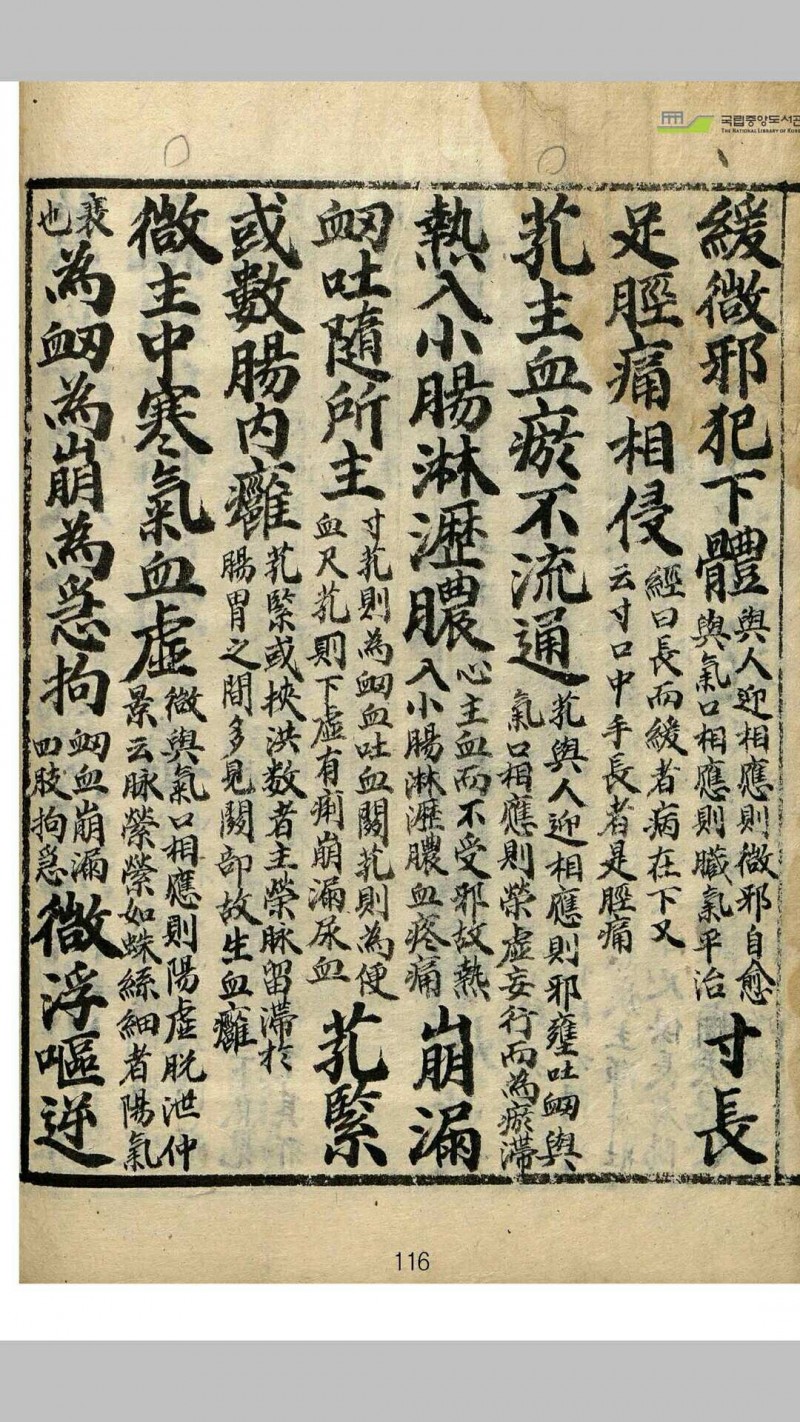 국립중앙도서관
THE NATIONAL LIBRARY OF KOREA
緩微邪犯下體與人迎相應則微邪自愈與氣口相應則臟氣平治寸長
足脛痛相侵經曰長而緩者病在下又云寸口中手長者是脛痛
芤主血瘀不流通芤與人迎相應則邪壅吐衂與氣口相應則榮虛妄行而為瘀滯
熱入小腸淋瀝膿心主血而不受邪故熱入小腸淋瀝膿血疼痛崩漏
衂吐隨所主寸芤則為衂血吐血關芤則為便血尺芤則下虛有痢崩漏尿血芤緊
或數腸內癰芤緊或挾洪数者主榮脉留滯於腸胃之間多見関部故生血癰
微主中寒氣血虛微與氣口相應則陽虛脫泄仲景云脉縈縈如蛛絲細者陽氣
衰也為衂為崩為急拘衂血崩漏四肢拘急微浮嘔逆
116